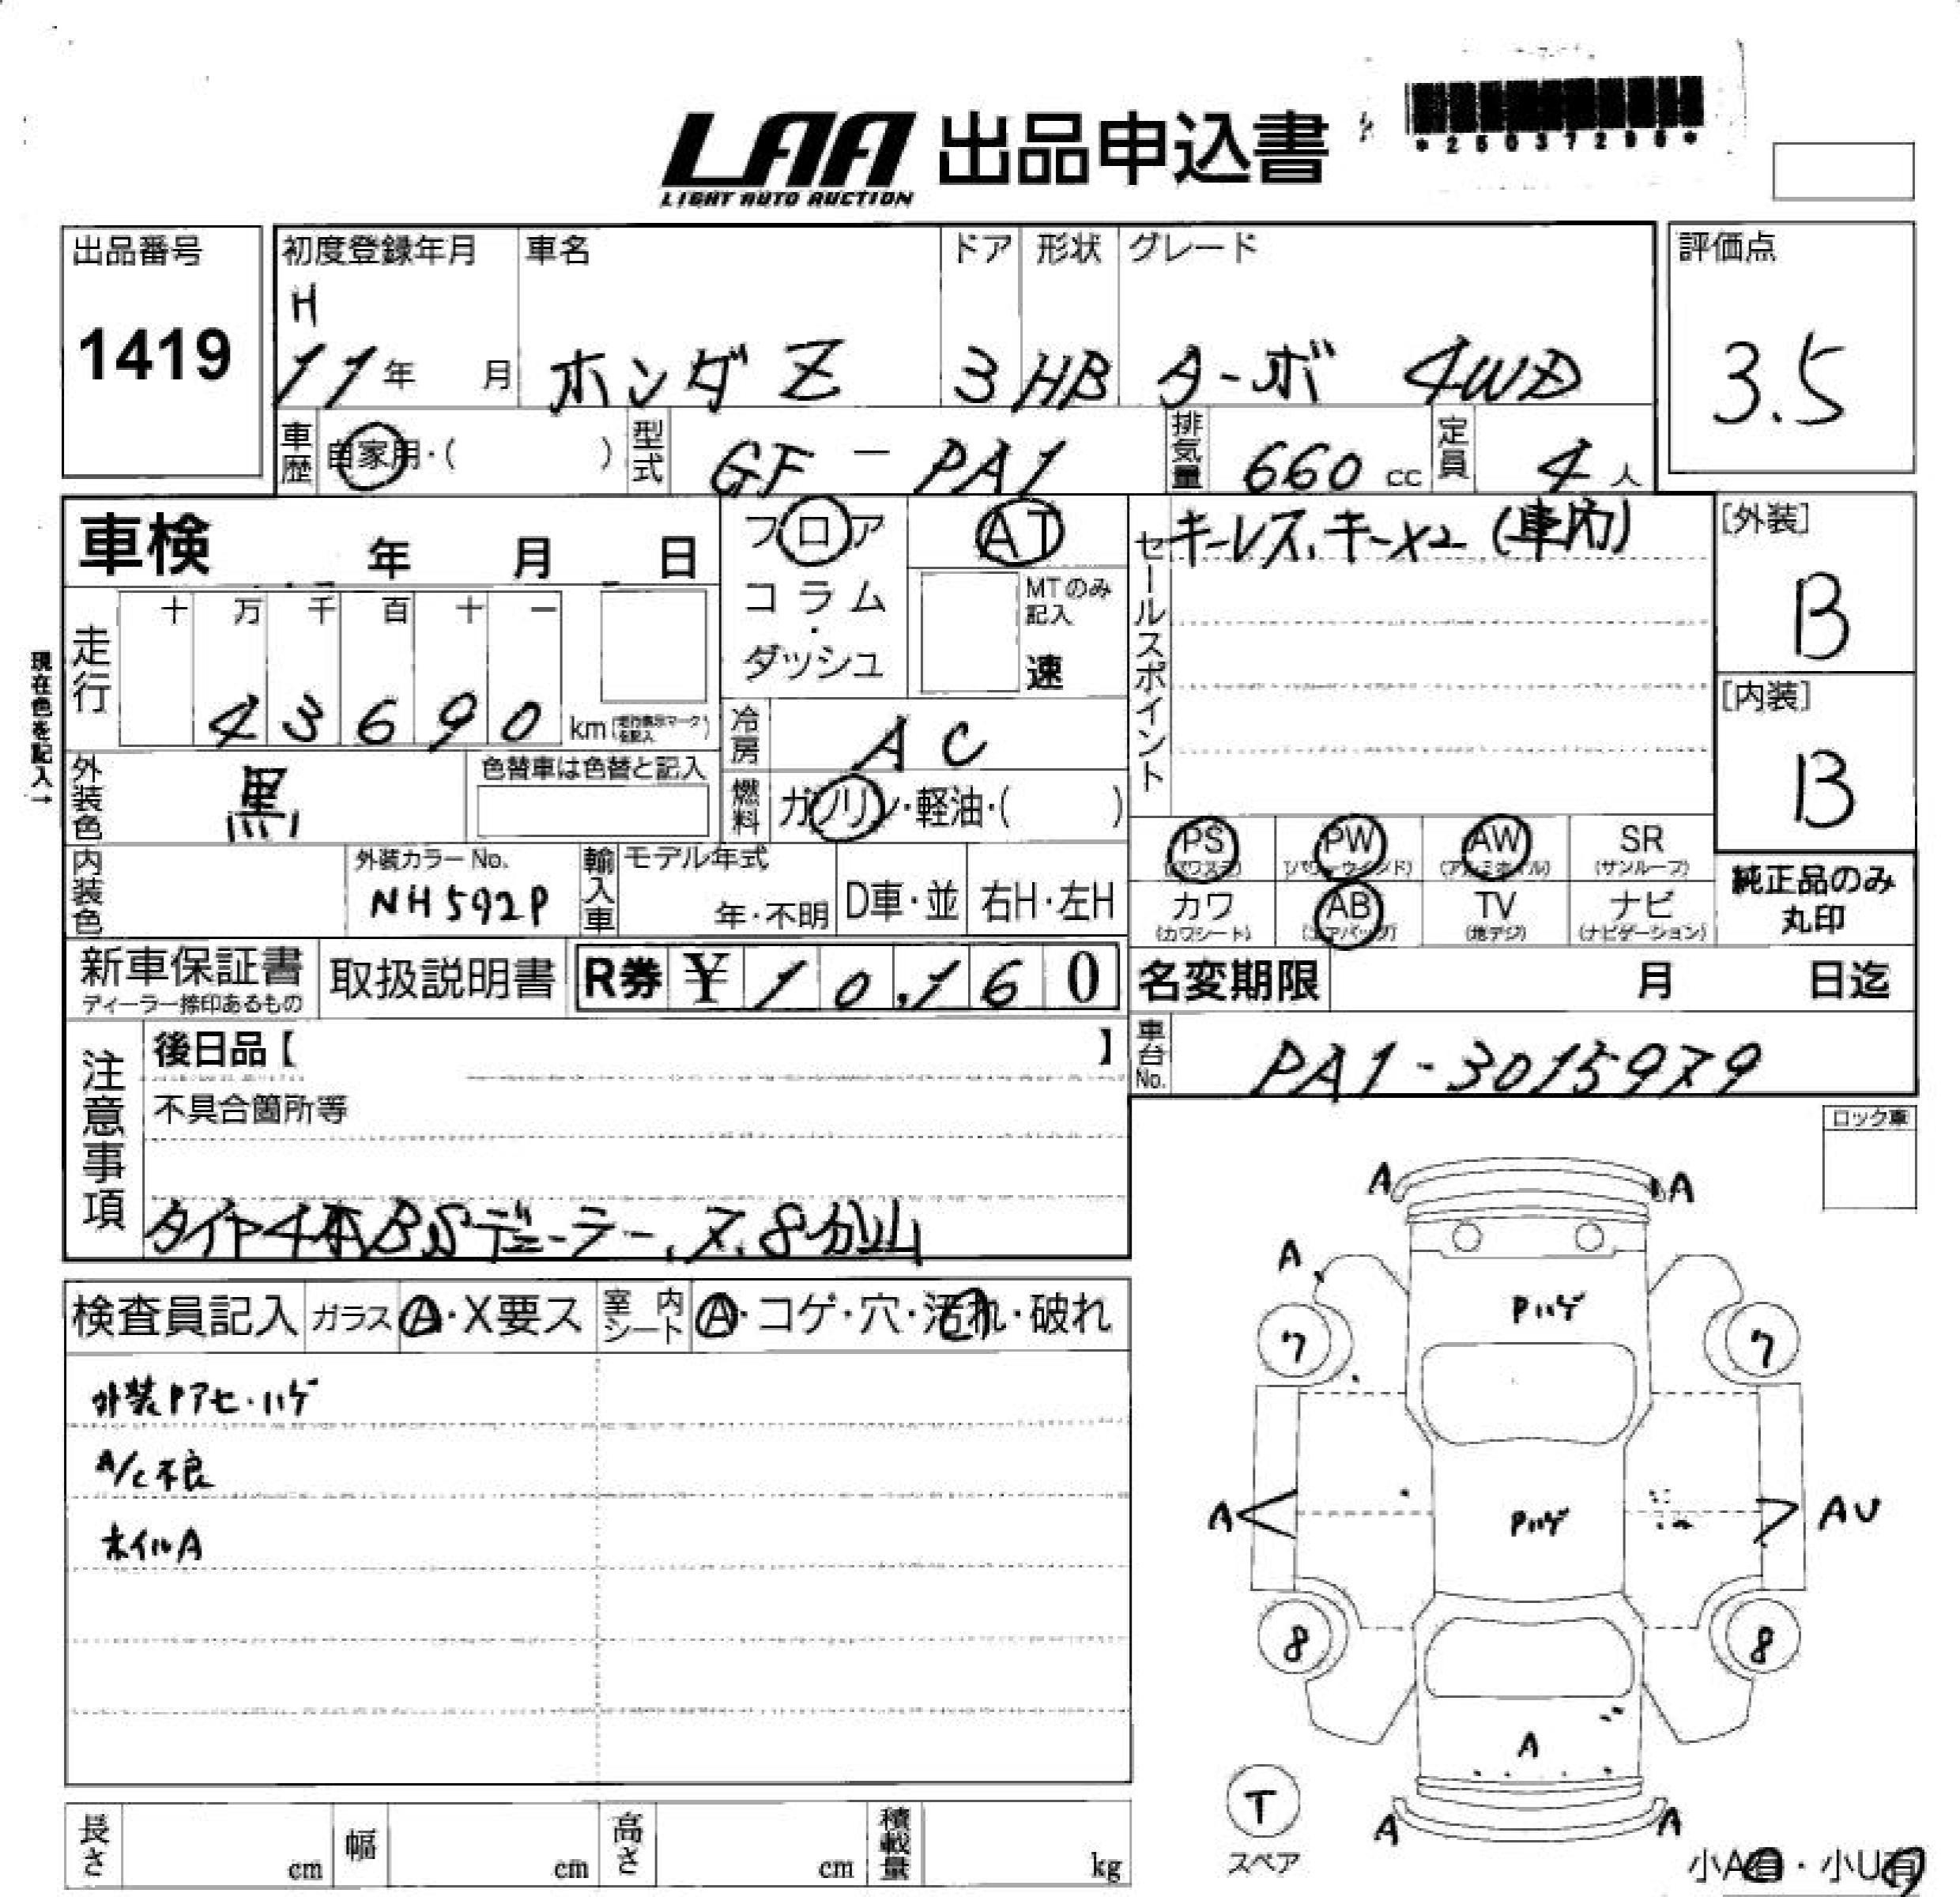 LAA 出品申込書
LIGHT AUTO AUCTION
*25037295*
出品番号
1419
初度登録年月 車名 ドア 形状 グレード
H
11年 月 ホンダ Z 3 HB ターボ 4WD
評価点
3.5
車歴 自家用・( ) 型式 GF-PA1 排気量 660 cc 定員 4 人
車検 年 月 日
フロア AT
コラム・ダッシュ
MTのみ記入
速
セールスポイント
キーレス、キー×2 (車内)
[外装]
B
[内装]
B
現在色を記入→
走行 十 万 千 百 十 一
43690 km
冷房 AC
外装色 黒 色替車は色替と記入
燃料 ガソリン・軽油・( )
PS PW AW SR
(パワステ) (パワーウインド) (アルミホイル) (サンルーフ)
カワ AB TV ナビ
(カワシート) (エアバッグ) (地デジ) (ナビゲーション)
純正品のみ
丸印
内装色 外装カラー No.
NH592P
輸入車 モデル年式
年・不明 D車・並 右H・左H
新車保証書
ディーラー捺印あるもの
取扱説明書 R券 ¥10,160
名変期限 月 日迄
車台No. PA1-3015979
注意事項
後日品【 】
不具合箇所等
タイヤ4本BSデューラー.7.8分山
ロック車
検査員記入 ガラス A・X要ス 室内シート A・コゲ・穴・汚れ・破れ
外装Pアセ・ハゲ
A/C不良
ホイルA
A A
A
Pハゲ
7 7
A Pハゲ AU
8 8
A
T
スペア
A A
小A有・小U有
長さ cm 幅 cm 高さ cm 積載量 kg